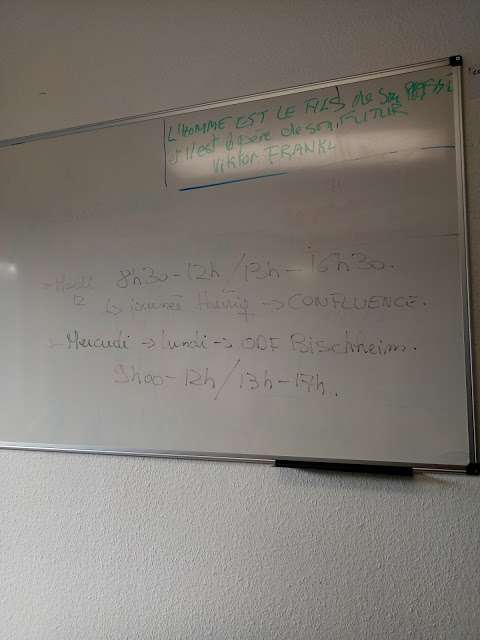 L'HOMME EST LE FILS de Son
et il est père de son FUTUR
Viktor FRANKL
→ Mardi 8h30-12h/13h-16h30.
12 ↳ journée → CONFLUENCE.
→ Mercredi → lundi → ODF Bischheim.
9h00-12h/13h-17h.